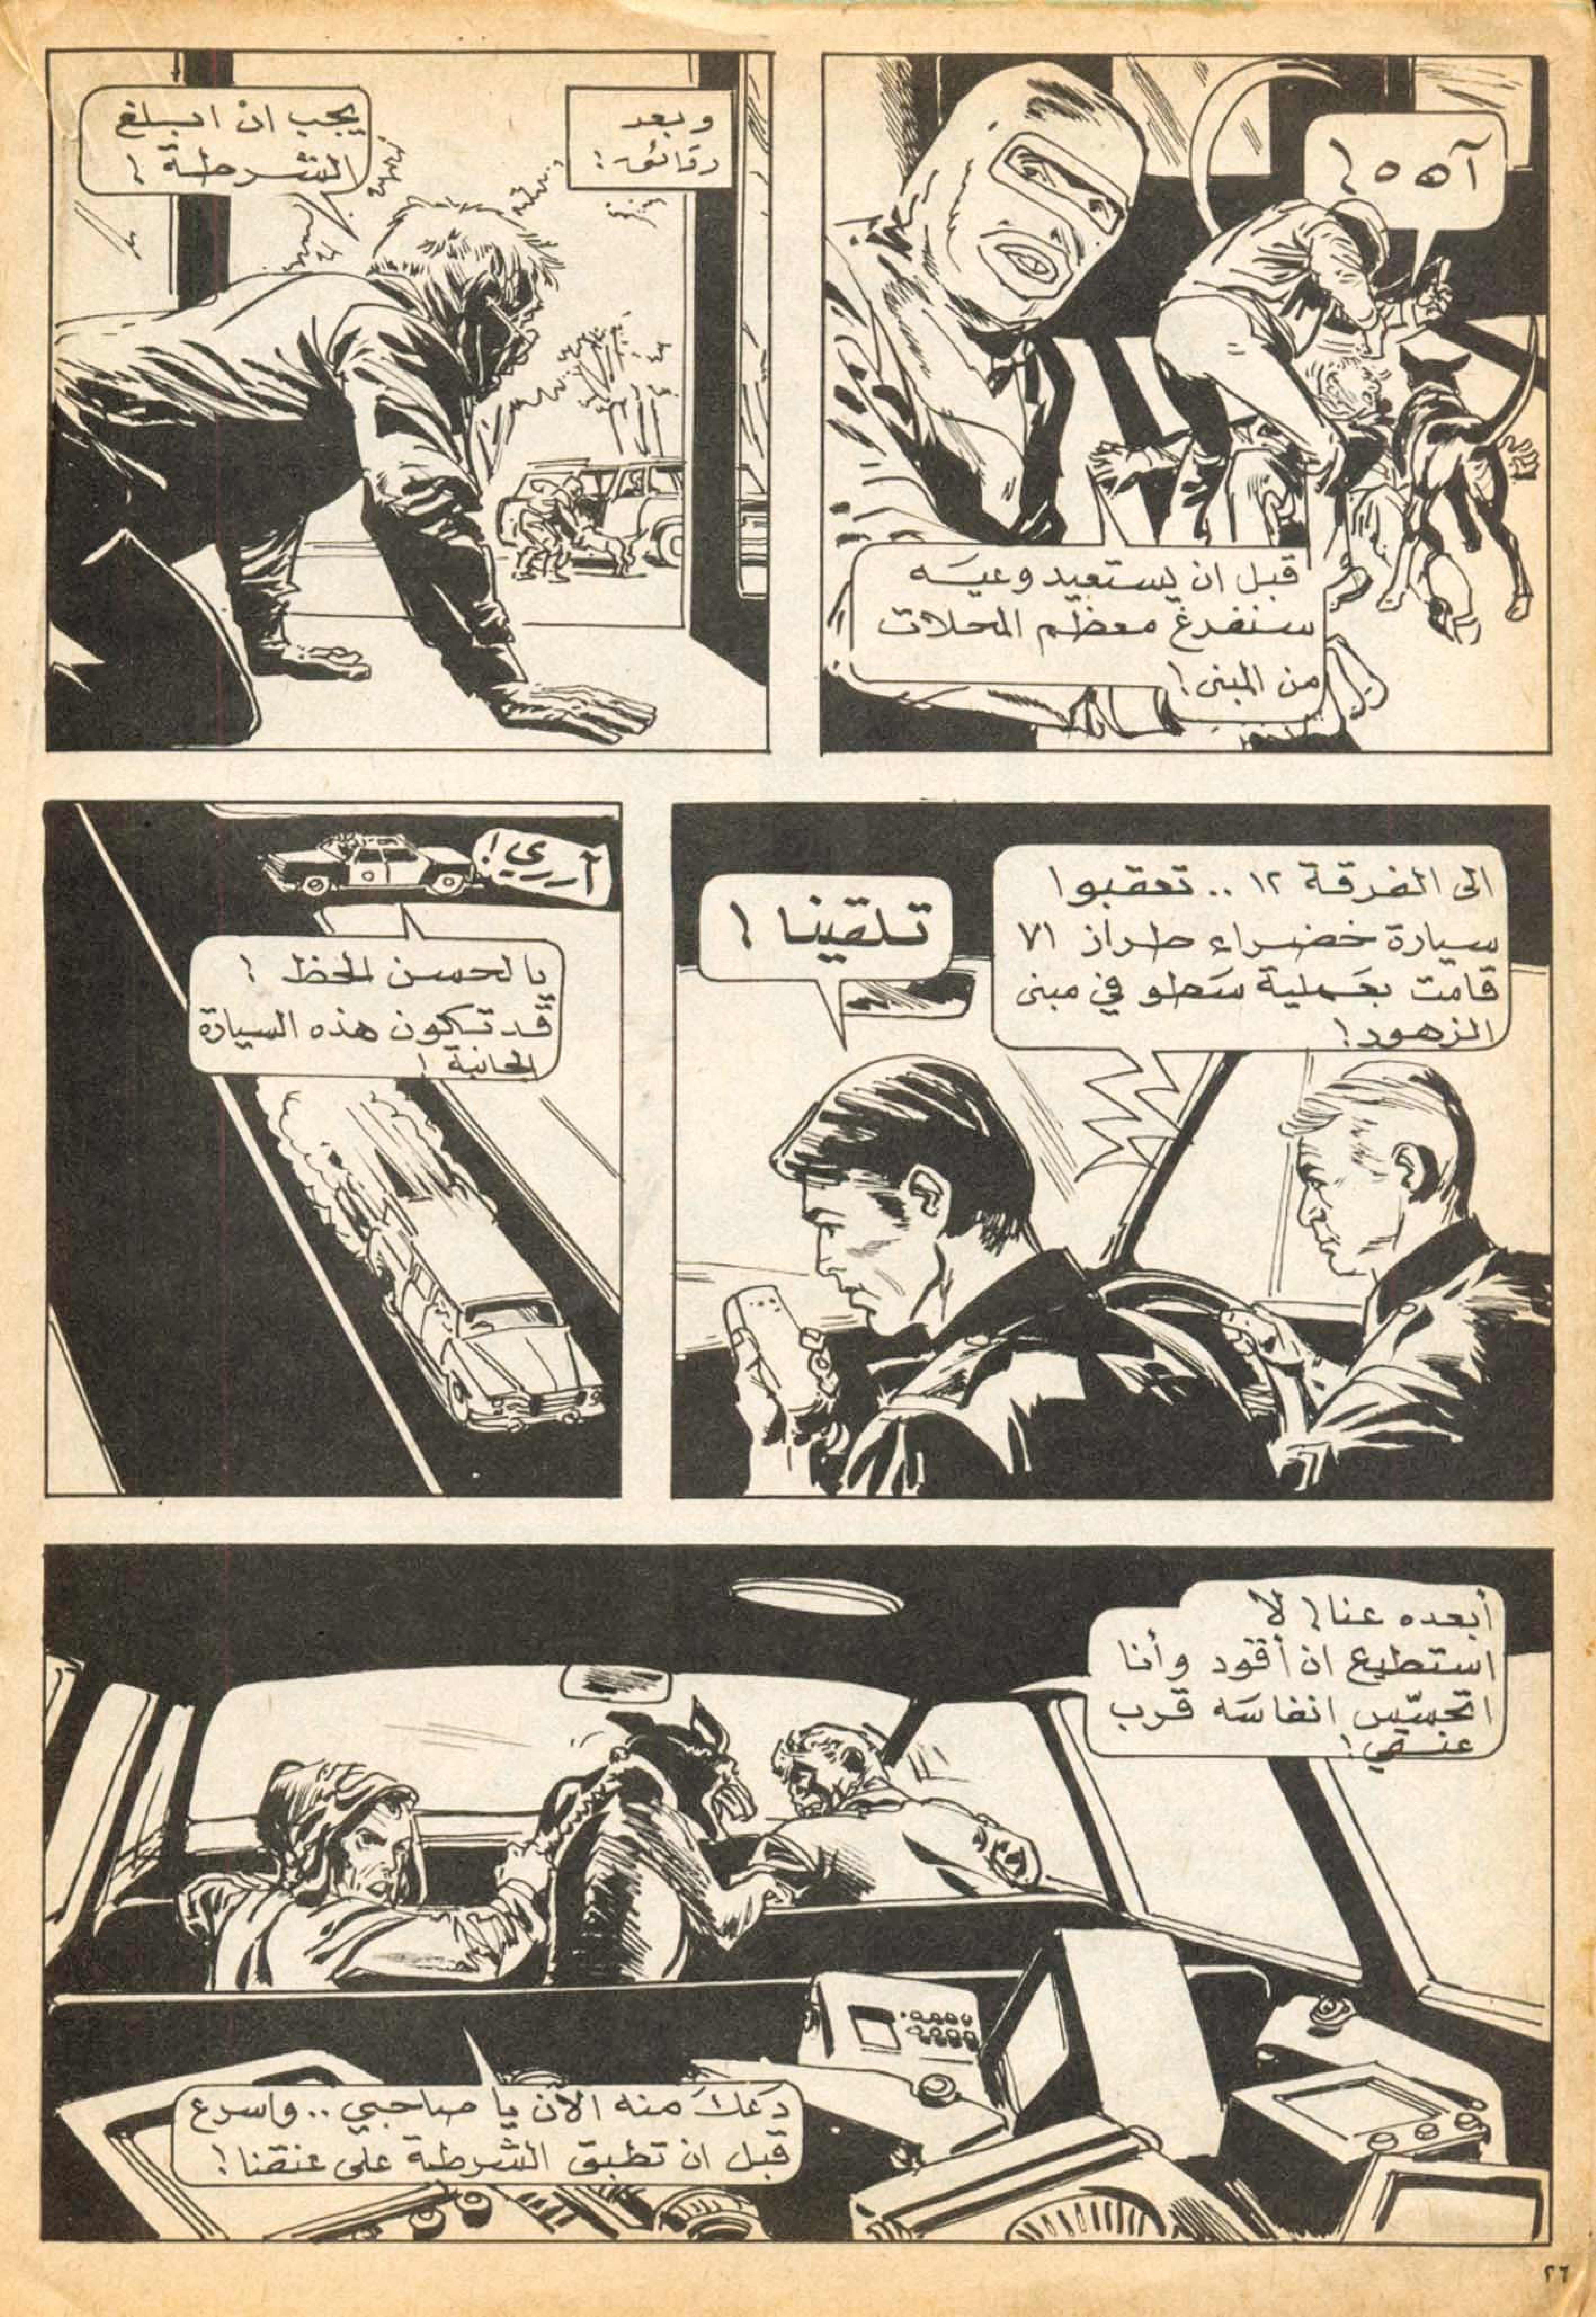 آه ه ه !
قبل ان يستعيد وعيه
سنفرغ معظم المحلات
من المبنى !
وبعد
دقائق :
يجب ان ابلغ
الشرطة !
الى الفرقة ١٢ .. تعقبوا
سيارة خضراء طراز ٧١
قامت بعملية سَطو في مبنى
الزهور !
تلقينا !
آرري !
يا لحسن الحظ !
قد تكون هذه السيارة
الجانية !
أبعده عنا ! لا
استطيع ان أقود وأنا
اتحسّس انفاسَه قرب
عنقي !
دَعكَ منه الآن يا صاحبي .. واسرع
قبل ان تطبق الشرطة على عنقنا !
٢٦